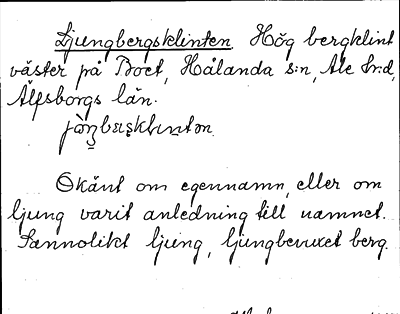 Ljungbergsklinten Hög bergklint
väster på Boet, Hålanda s:n, Ale hd,
Älfsborgs län.
Okänt om egennamn, eller om
ljung varit anledning till namnet.
Sannolikt ljung, ljungbevuxet berg.